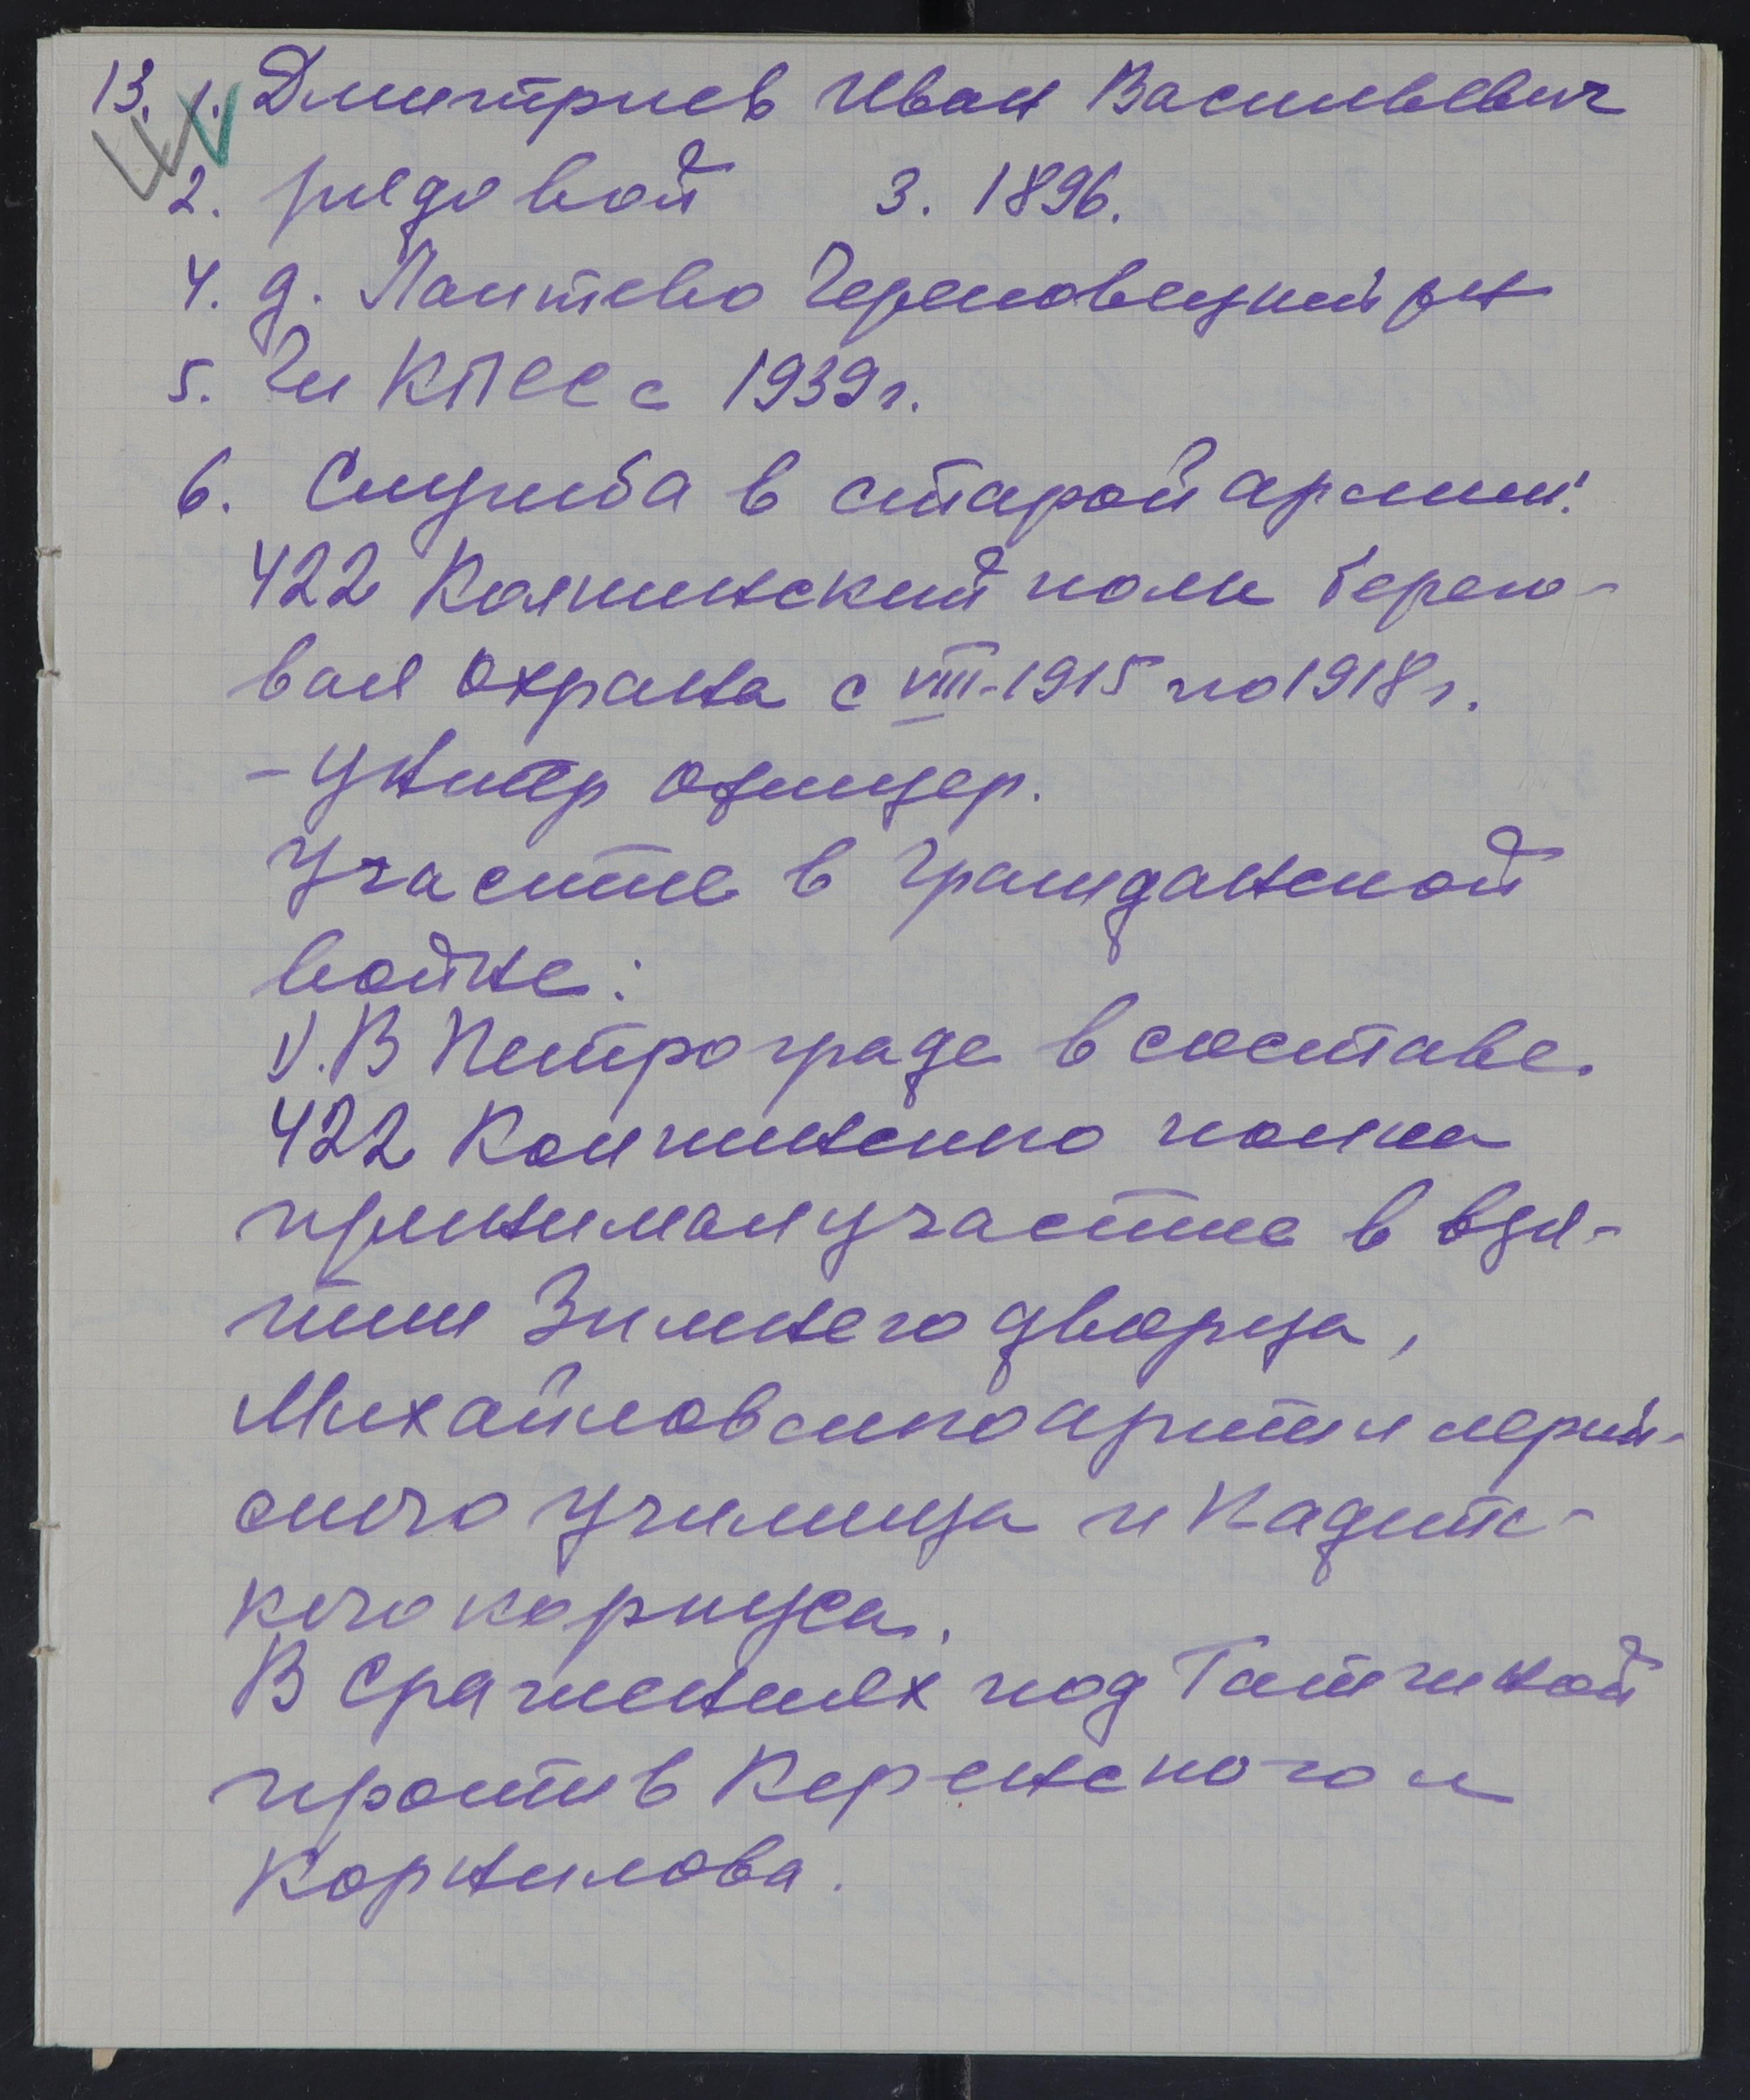 13. 1. Дмитриев Иван Васильевич
2. рядовой 3. 1896.
4. д. Лаптево Череповецкий р-н
5. Чл КПСС с 1939 г.
6. Служба в старой армии:
422 Колпинский полк берего-
вая охрана с VIII-1915 по 1918 г.
- Унтер офицер.
Участие в гражданской
войне:
1. В Петрограде в составе
422 Колпинского полка
принимал участие в взя-
тии Зимнего дворца,
Михайловского артиллерий-
ского училища и Кадетс-
кого корпуса.
В сражениях под Гатчиной
против Керенского и
Корнилова.